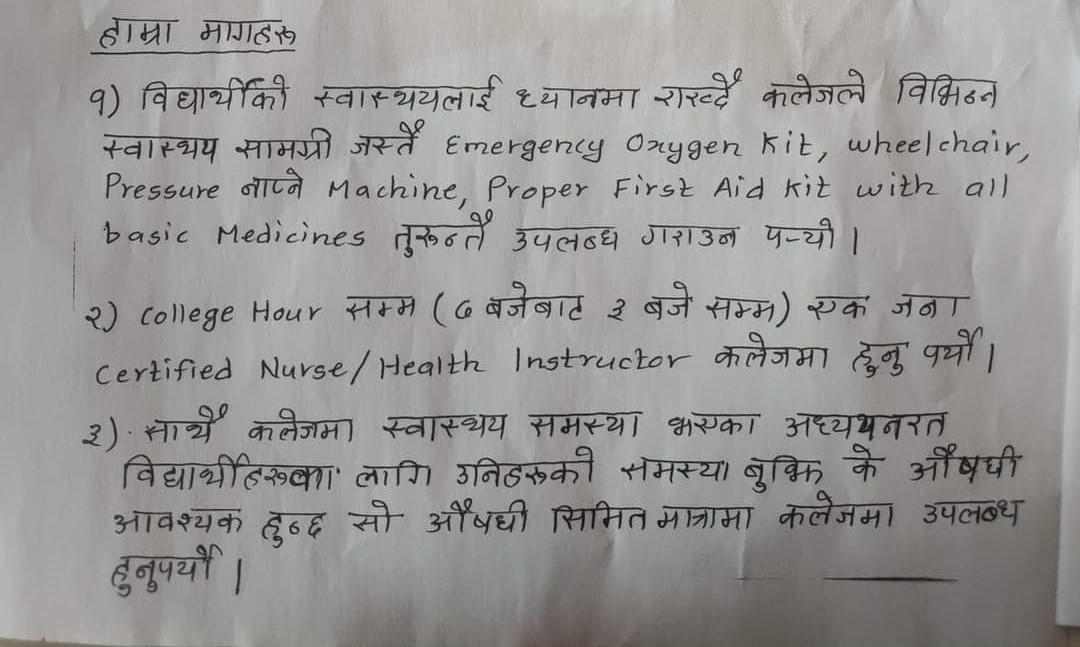 हाम्रा मागहरू
१) विद्यार्थीको स्वास्थयलाई ध्यानमा राख्दै कलेजले विभिन्न
स्वास्थय सामग्री जस्तै Emergency Oxygen Kit, wheelchair,
Pressure नाप्ने Machine, Proper First Aid Kit with all
basic Medicines तुरून्तै उपलब्ध गराउन पऱ्यो ।
२) College Hour सम्म (६ बजेबाट ३ बजे सम्म) एक जना
Certified Nurse/Health Instructor कलेजमा हुनु पर्यो ।
३) साथै कलेजमा स्वास्थय समस्या भएका अध्ययनरत
विद्यार्थीहरूका लागि उनिहरूको समस्या बुझि के औषधी
आवश्यक हुन्छ सो औषधी सिमित मात्रामा कलेजमा उपलब्ध
हुनुपर्यो ।